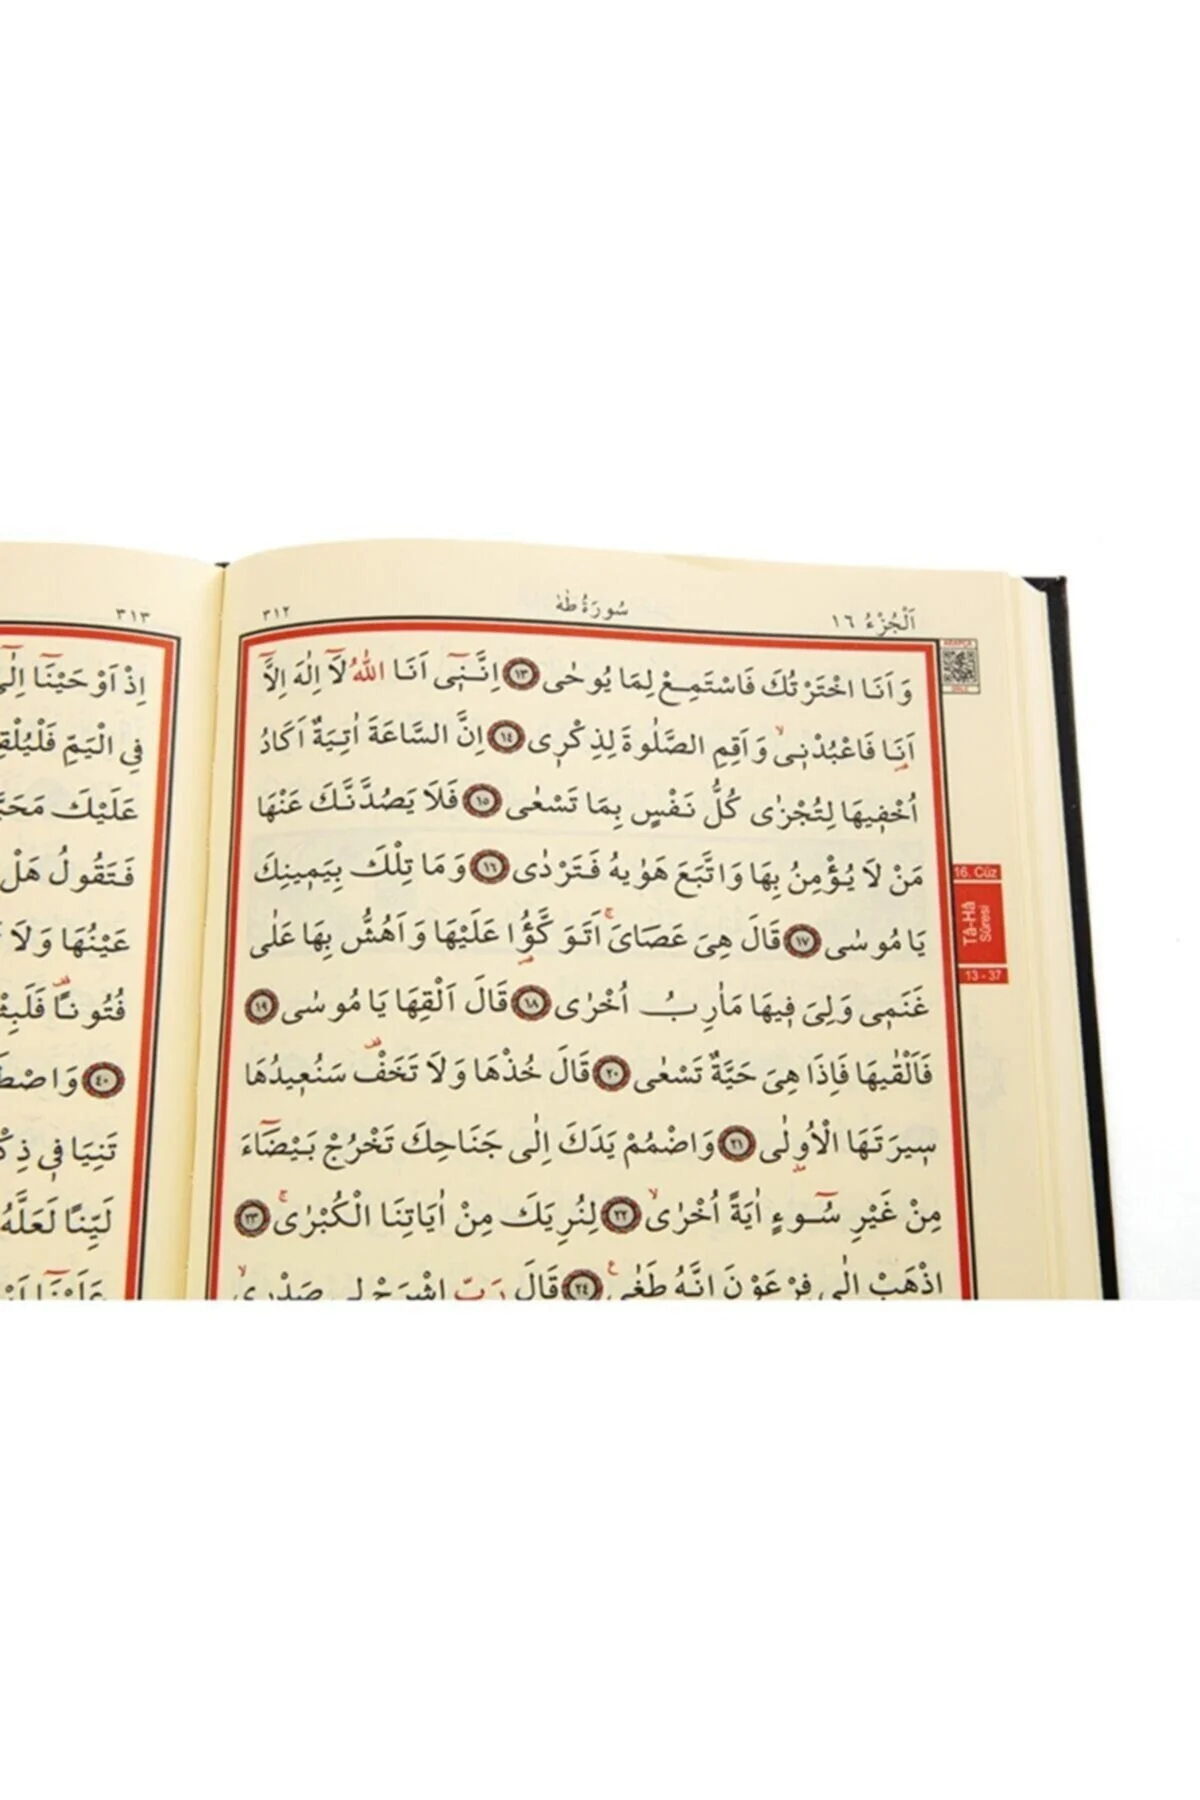 اَلْجُزْءُ ١٦
سُورَةُ طٰهٰ
٣١٢
وَاَنَا اخْتَرْتُكَ فَاسْتَمِعْ لِمَا يُوحٰى ﴿١٣﴾ اِنَّنٖٓى اَنَا اللّٰهُ لَٓا اِلٰهَ اِلَّٓا
اَنَا فَاعْبُدْنٖىۙ وَاَقِمِ الصَّلٰوةَ لِذِكْرٖى ﴿١٤﴾ اِنَّ السَّاعَةَ اٰتِيَةٌ اَكَادُ
اُخْفٖيهَا لِتُجْزٰى كُلُّ نَفْسٍ بِمَا تَسْعٰى ﴿١٥﴾ فَلَا يَصُدَّنَّكَ عَنْهَا
مَنْ لَا يُؤْمِنُ بِهَا وَاتَّبَعَ هَوٰيهُ فَتَرْدٰى ﴿١٦﴾ وَمَا تِلْكَ بِيَمٖينِكَ
يَا مُوسٰى ﴿١٧﴾ قَالَ هِىَ عَصَاىَۚ اَتَوَكَّؤُ۬ا عَلَيْهَا وَاَهُشُّ بِهَا عَلٰى
غَنَمٖى وَلِىَ فٖيهَا مَاٰرِبُ اُخْرٰى ﴿١٨﴾ قَالَ اَلْقِهَا يَا مُوسٰى ﴿١٩﴾
فَاَلْقٰيهَا فَاِذَا هِىَ حَيَّةٌ تَسْعٰى ﴿٢٠﴾ قَالَ خُذْهَا وَلَا تَخَفْ۠ سَنُعٖيدُهَا
سٖيرَتَهَا الْاُو۫لٰى ﴿٢١﴾ وَاضْمُمْ يَدَكَ اِلٰى جَنَاحِكَ تَخْرُجْ بَيْضَٓاءَ
مِنْ غَيْرِ سُٓوءٍ اٰيَةً اُخْرٰىۙ ﴿٢٢﴾ لِنُرِيَكَ مِنْ اٰيَاتِنَا الْكُبْرٰىۚ ﴿٢٣﴾
اِذْهَبْ اِلٰى فِرْعَوْنَ اِنَّهُ طَغٰى ﴿٢٤﴾ قَالَ رَبِّ اشْرَحْ لٖى صَدْرٖىۙ
16. Cüz
Tâ-Hâ
Sûresi
13 - 37
٣١٣
اِذْ اَوْحَيْنَٓا
فِى الْيَمِّ
عَلَيْكَ
فَتَقُولُ هَلْ
عَيْنُهَا وَلَا
فُتُونًا
﴿٤٠﴾
تَنِيَا فٖى
لَيِّنًا لَعَلَّهُ
عَلَيْنَٓا